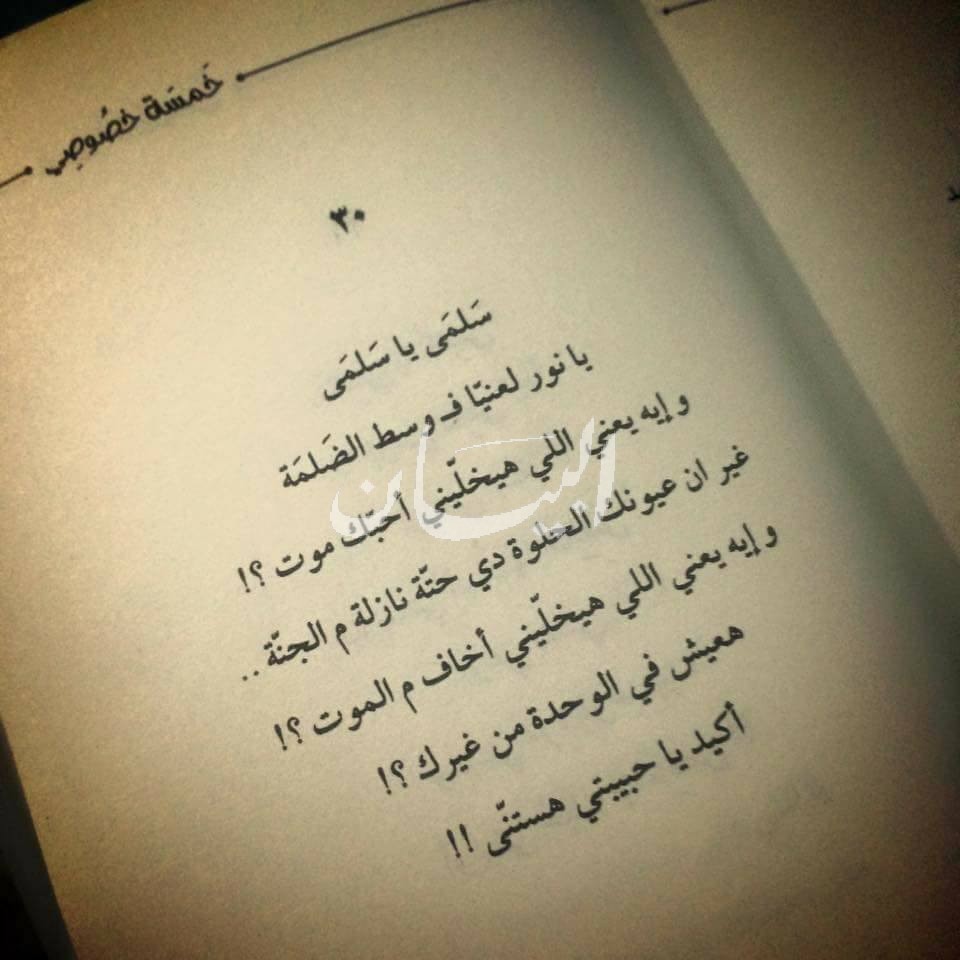 خَمسَة خصُوصِي
٣٠
سَلمَى يا سَلمَى
يا نور لعنيّا فـ وسط الضَلمَة
وإيه يعني اللي هيخلّيني أحبّك موت ؟!
غير ان عيونك الحلوة دي حتّة نازلة م الجنّة ..
وإيه يعني اللي هيخلّيني أخاف م الموت ؟!
هعيش في الوحدة من غيرك ؟!
أكيد يا حبيبتي هستنّى !!
البيان